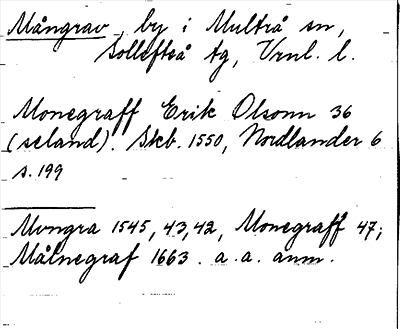 Mångrav, by i Multrå sn,
Sollefteå tg, Vrnl. l.
Monegraff Erik Olsonn 36
(seland). Skb. 1550, Nordlander 6
s. 199
Mvngra 1545, 43, 42, Monegraff 47;
Målnegraf 1663. a. a. anm.